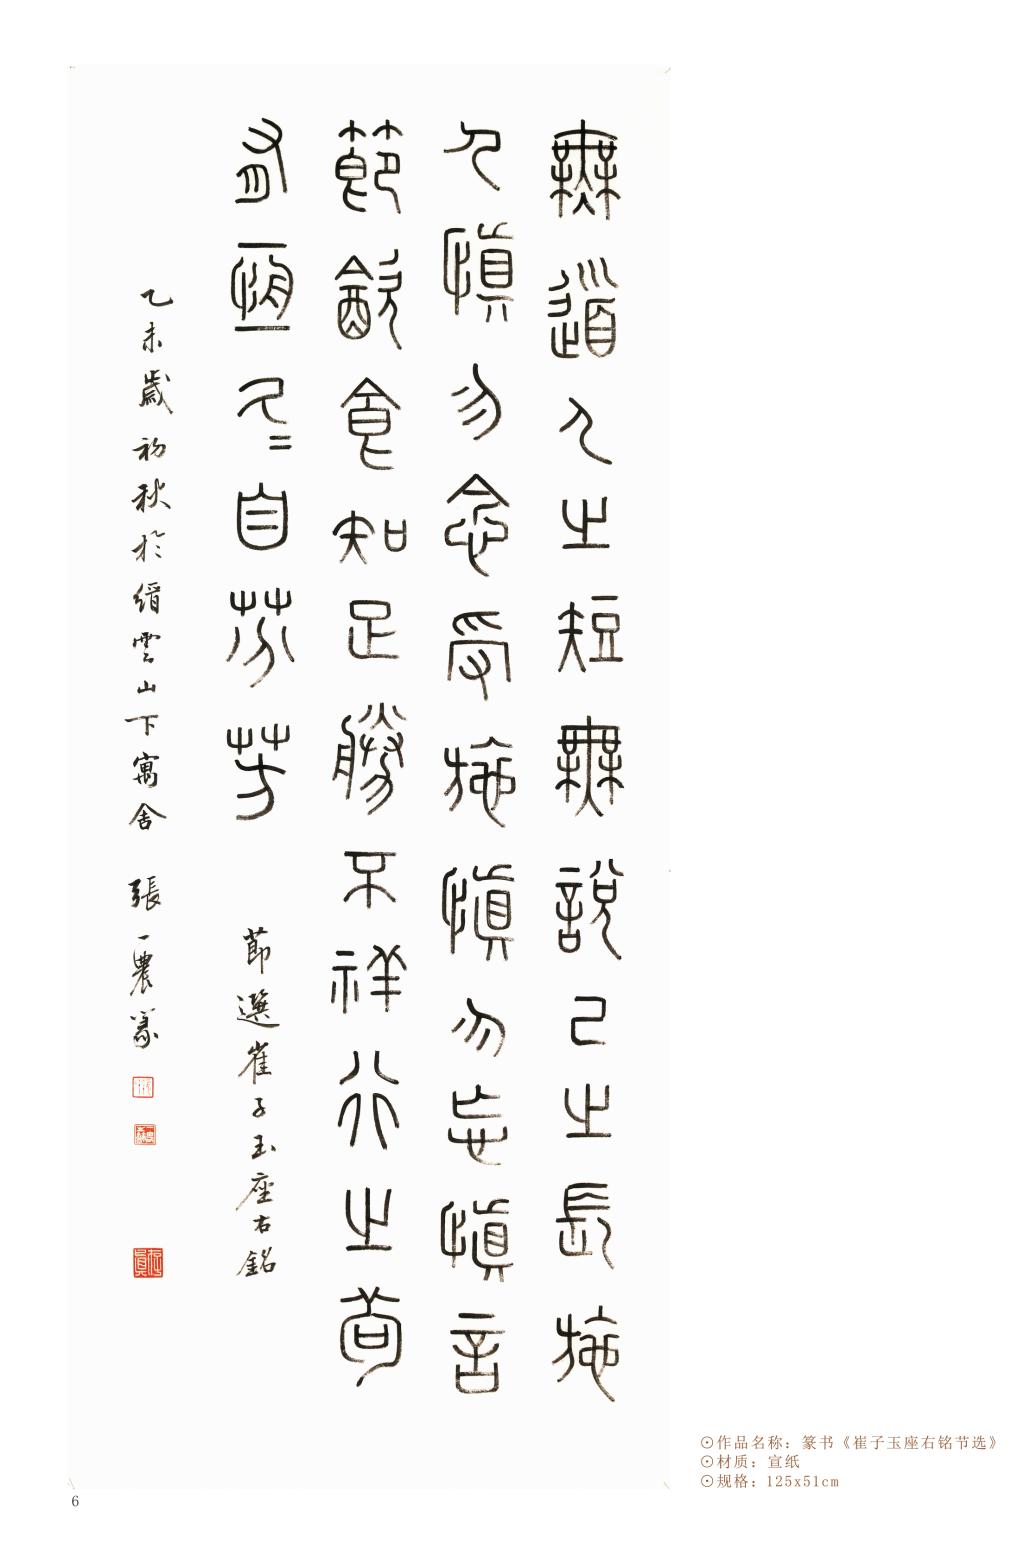 無道人之短無說己之長施
人慎勿念受施慎勿忘慎言
節飲食知足勝不祥行之苟
有恆久〻自芬芳
節選崔子玉座右銘
乙未歲初秋於縉雲山下寓舍 張一農篆
⊙作品名称：篆书《崔子玉座右铭节选》
⊙材质：宣纸
⊙规格：125x51cm
6